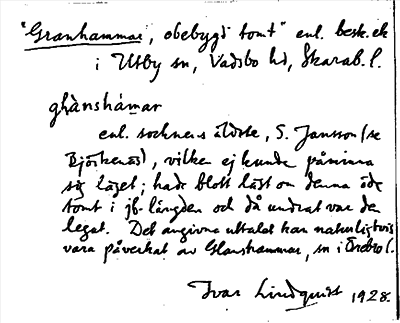 "Granhammar, obebygd tomt" enl. besk. ek
i Utby sn, Vadsbo hd, Skarab. l.
ghànshámar
enl. socknens äldste, S. Jansson (se
Björkenäs), vilken ej kunde påminna
sig läget; hade blott läst om denna öde
tomt i jb-längden och då undrat var den
legat. Det angivna uttalet kan naturligtvis
vara påverkat av Glanshammar, sn i Örebro l.
Ivar Lindquist 1928.